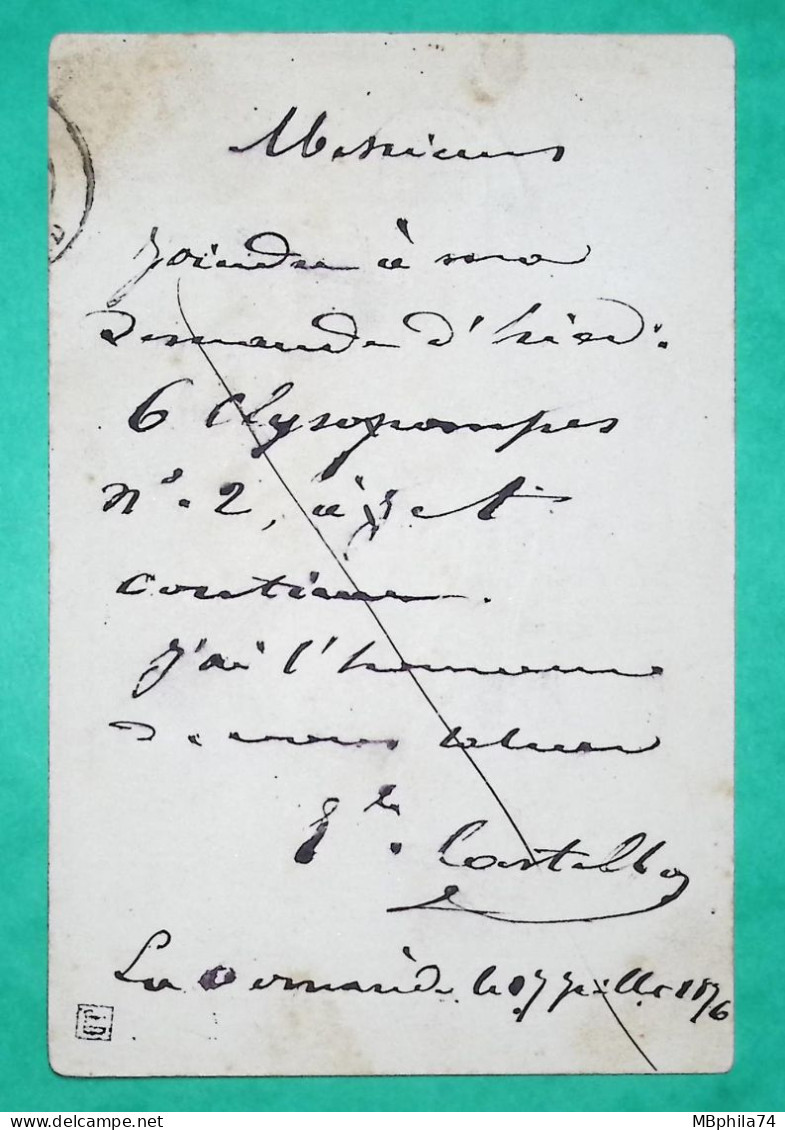 Messieurs
Joindre à ma
demande d'hier:
6 Clysopompes
N°. 2, à jet
continu.
J'ai l'honneur
de vous saluer
Castelbo
La le 17 Juillet 1876
MBphila74